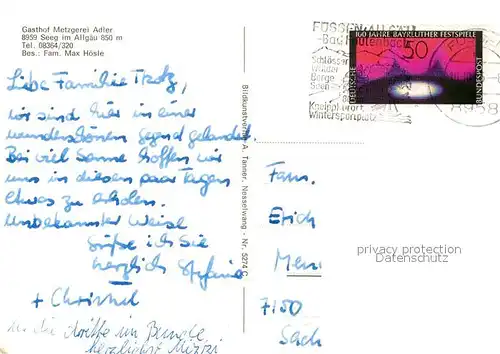 Gasthof Metzgerei Adler
8959 Seeg im Allgäu 850 m
Tel. 08364/320
Bes.: Fam. Max Hösle
Liebe Familie
wir sind hier in einer
wunderschönen Gegend gelandet.
Bei viel Sonne hoffen wir
uns in diesen paar Tagen
etwas zu erholen.
Unbekannter Weise
grüße ich Sie
herzlich Stefanie
+ Christel
die dritte im Bunde
herzlichst Mitzi
Bildkunstverlag A. Tanner, Nesselwang - Nr. 5274 C
FÜSSEN
-Bad Faulenbach
Schlösser
Wälder
Berge
Seen
Kneippkurort
Wintersportplatz
100 JAHRE BAYREUTHER FESTSPIELE
50
DEUTSCHE
BUNDESPOST
8958
Fam.
Erich
7150
privacy protection
Datenschutz